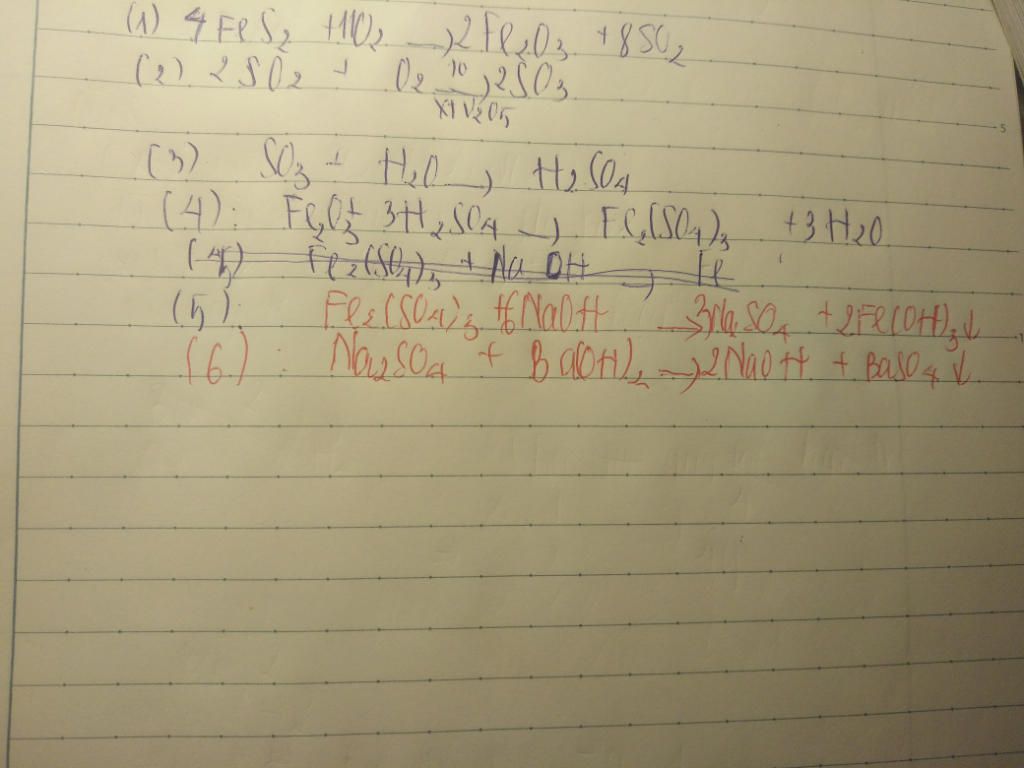 (1) 4 FeS2 + 11O2 → 2 Fe2O3 + 8SO2
(2) 2 SO2 + O2 → 2SO3
xt V2O5
(3) SO3 + H2O → H2SO4
(4): Fe2O3 + 3H2SO4 → Fe2(SO4)3 + 3H2O
Fe2(SO4)3 + NaOH → Fe
(5): Fe2(SO4)3 + 6NaOH → 3Na2SO4 + 2Fe(OH)3↓
(6): Na2SO4 + Ba(OH)2 → 2NaOH + BaSO4↓